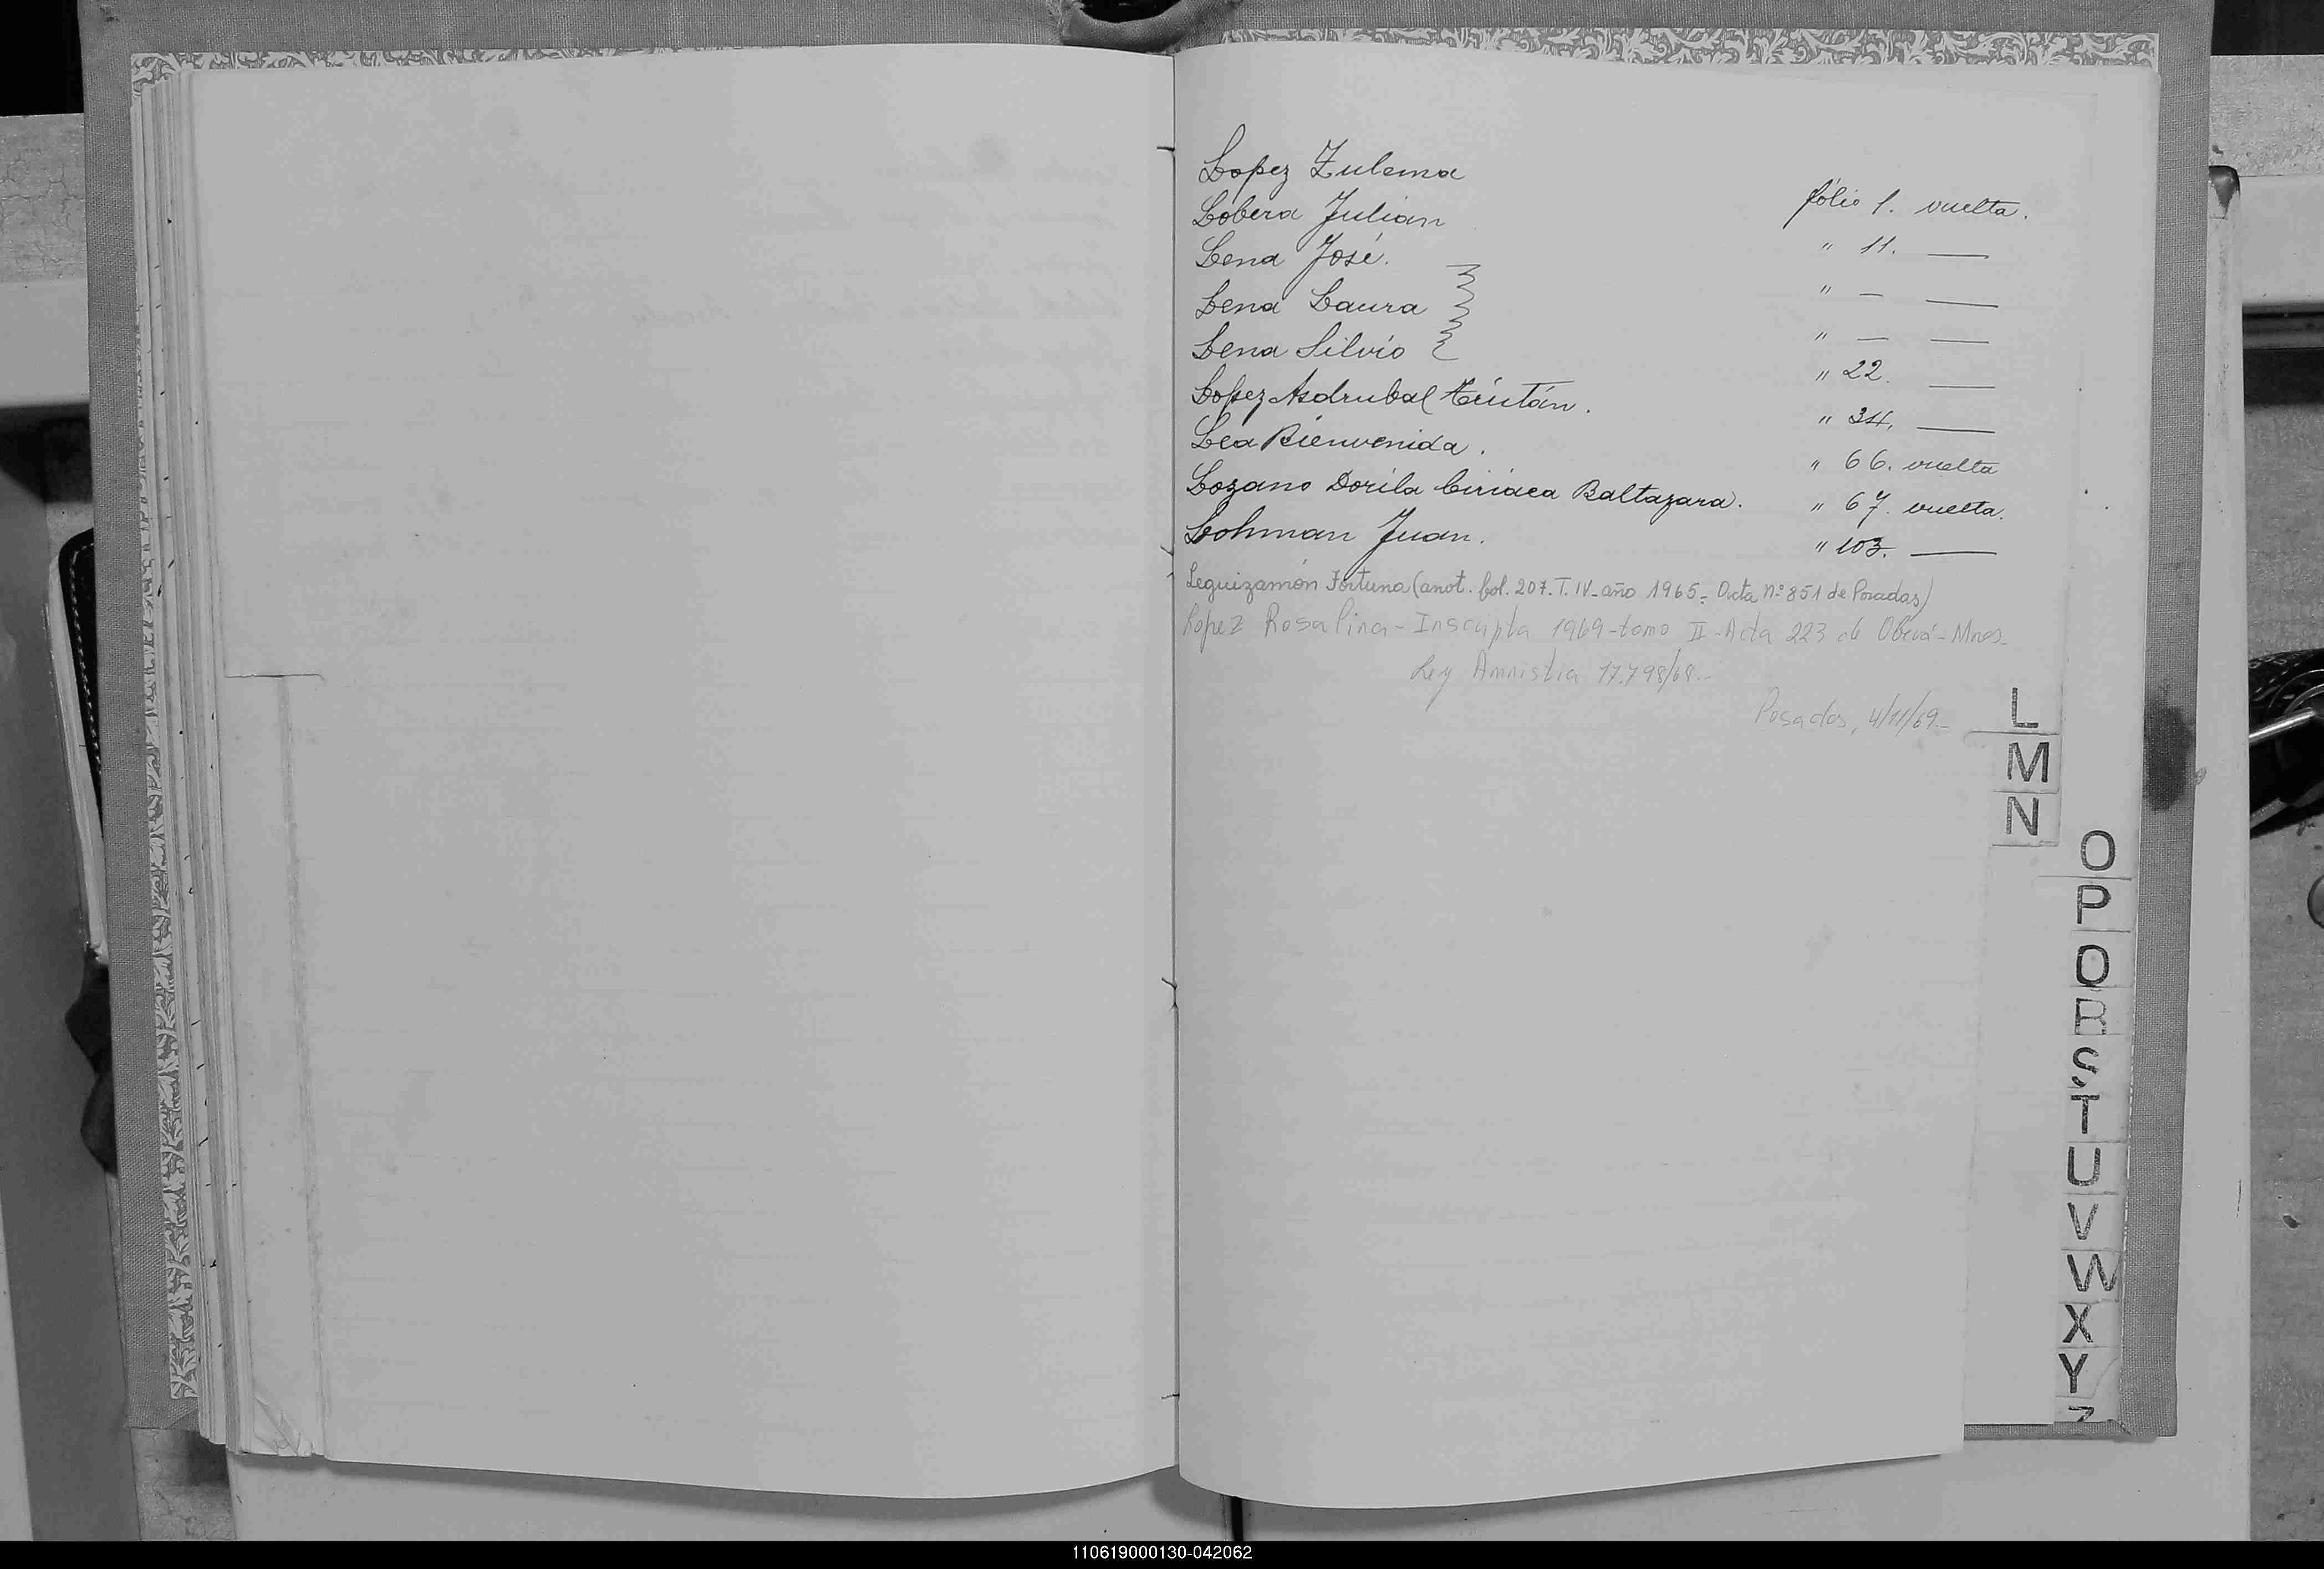 Lopez Zulema folio 1. vuelta.
Lobera Julian " 11. —
Lena José. " — —
Lena Laura " — —
Lena Silvio " 22. —
Lopez Asdrubal " 34. —
Lea Bienvenida. " 66. vuelta
Lozano Dorila Ciriaca Baltazara. " 67. vuelta.
Lohman Juan. " 103. —
Leguizamón Fortuna (anot. fol. 207. T. IV- año 1965- Acta nº 851 de Posadas)
Lopez Rosalina - Inscripta 1969 - tomo II - Acta 223 de Oberá - Mnes-
Ley Amnistia 17.798/68.-
Posadas, 4/11/69.-
L
M
N
O
P
Q
R
S
T
U
V
W
X
Y
Z
110619000130-042062